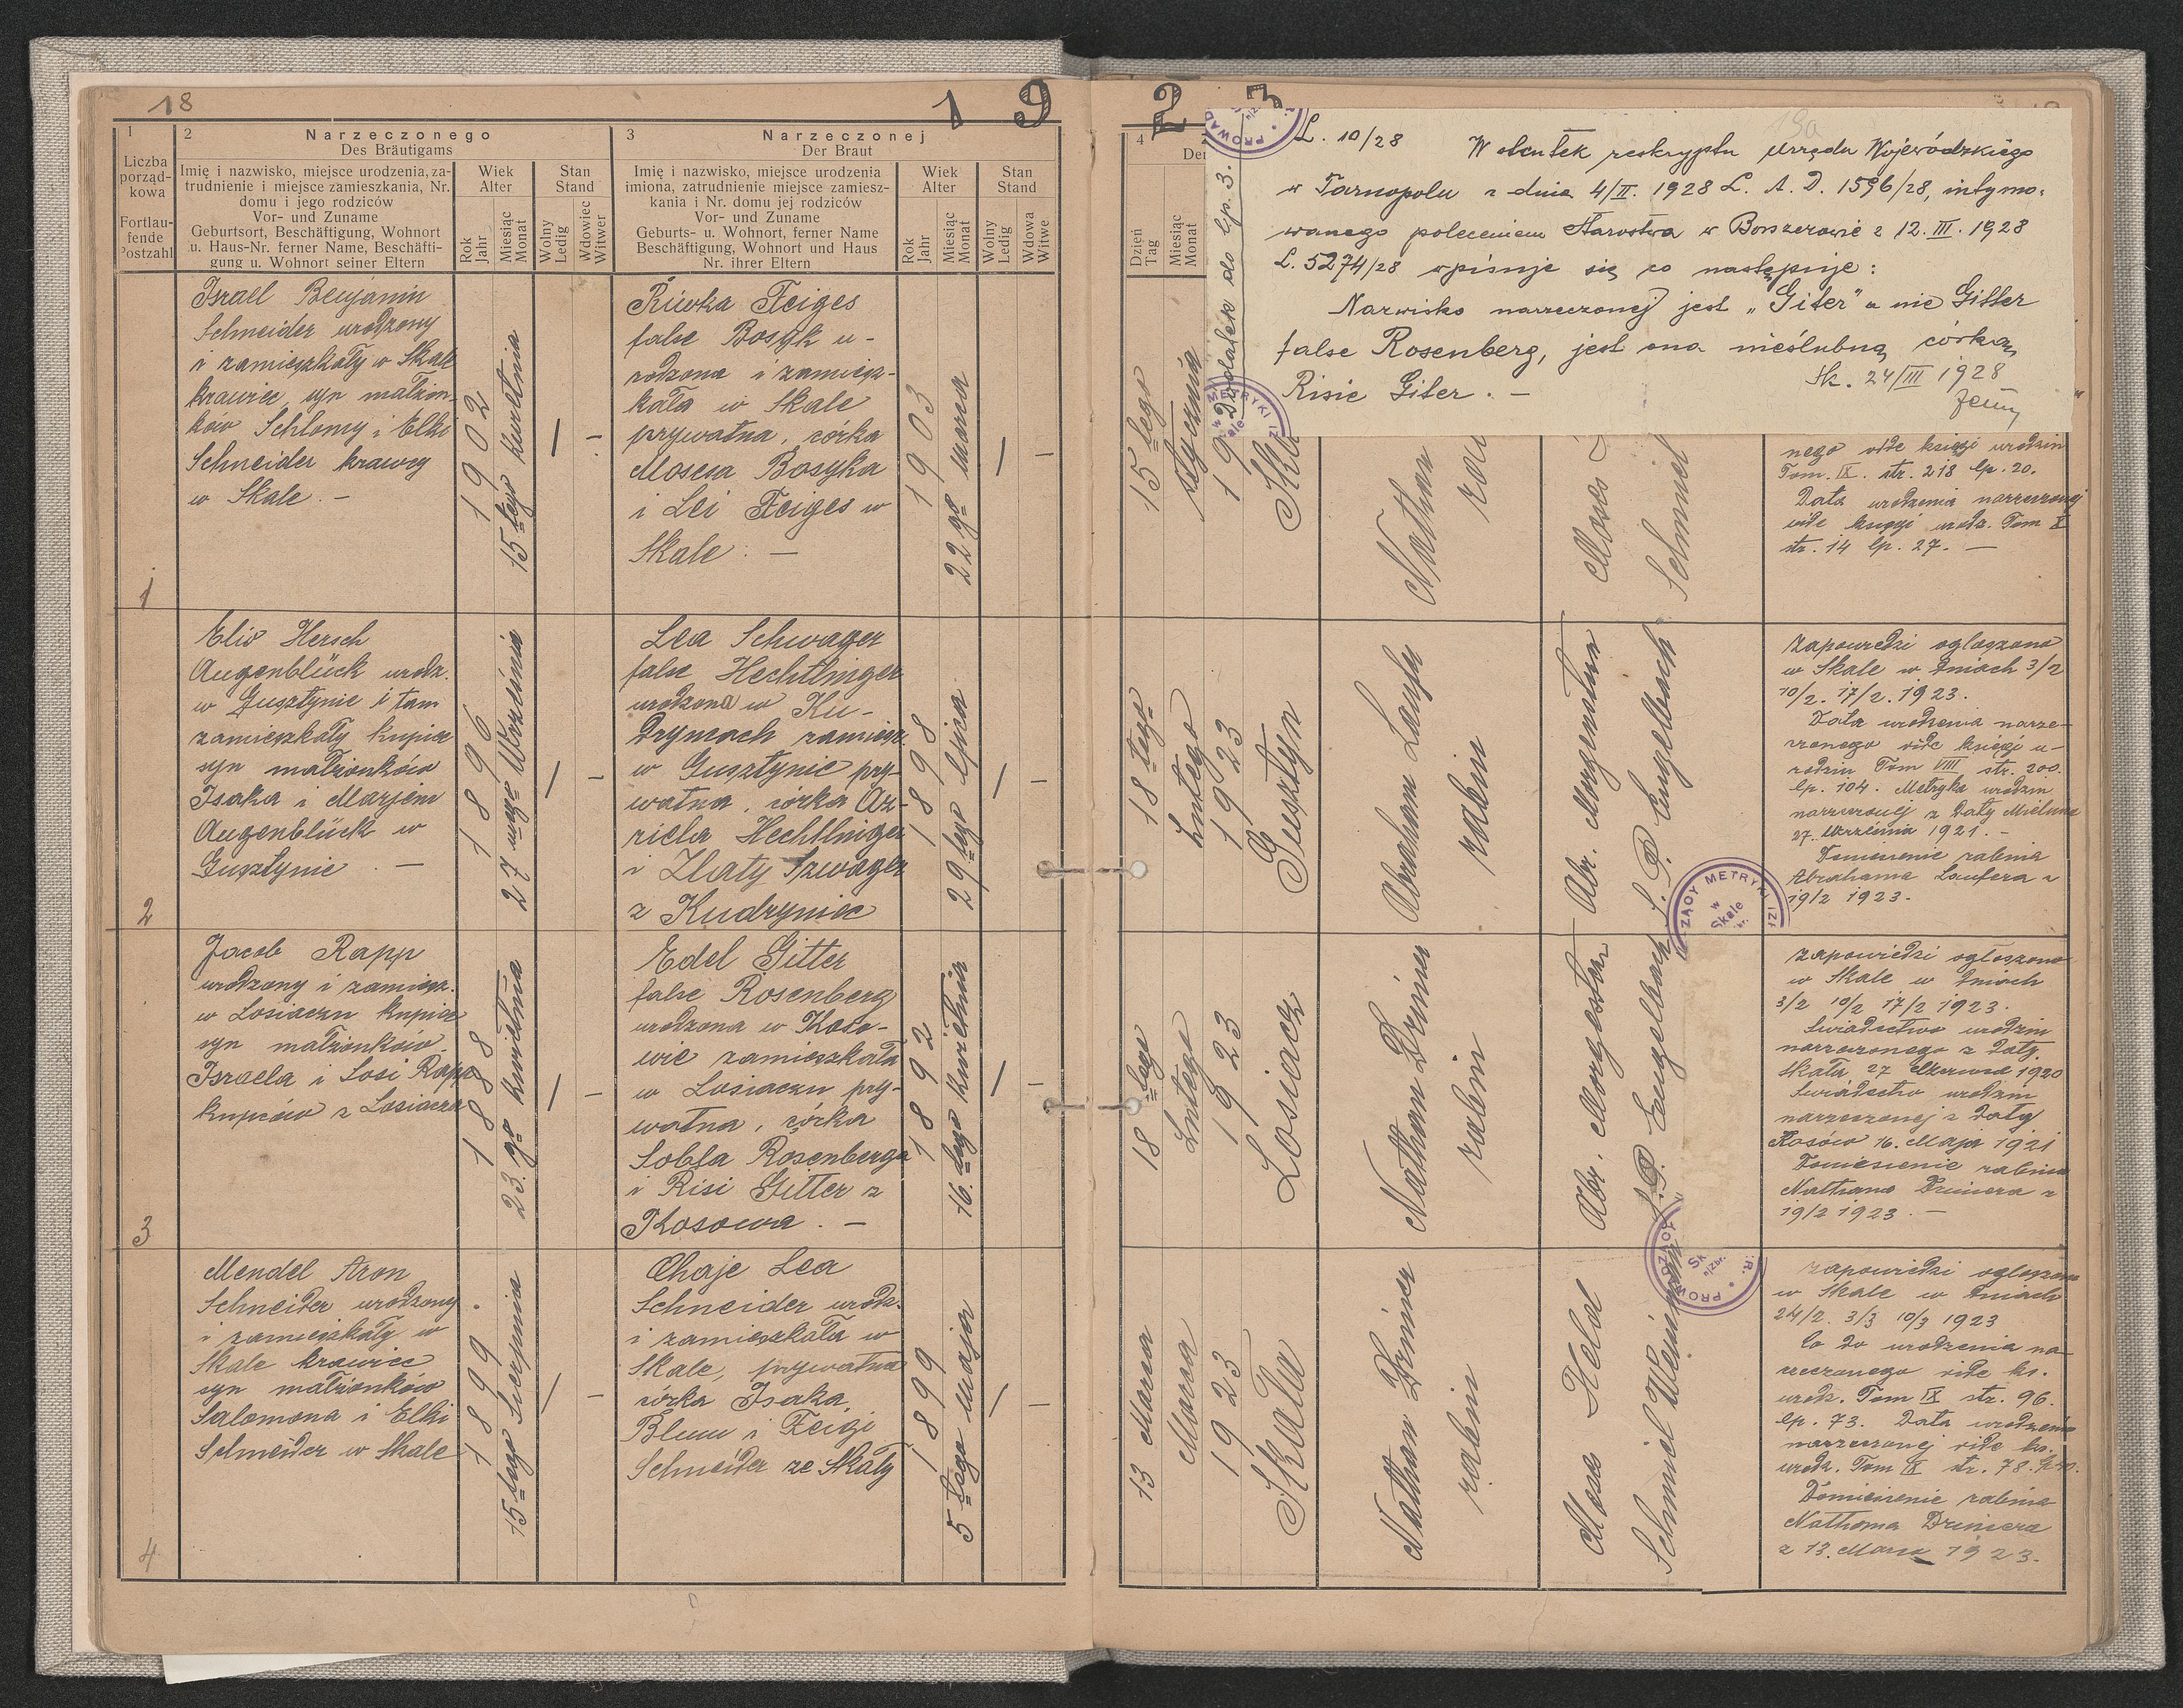 18
1 9 2 3
1
Liczba
porząd-
kowa
Fortlau-
fende
Postzahl
2
Narzeczonego
Des Bräutigams
Imię i nazwisko, miejsce urodzenia, za-
trudnienie i miejsce zamieszkania, Nr.
domu i jego rodziców
Vor- und Zuname
Geburtsort, Beschäftigung, Wohnort
u. Haus-Nr. ferner Name, Beschäfti-
gung u. Wohnort seiner Eltern
Wiek
Alter
Rok
Jahr
Miesiąc
Monat
Stan
Stand
Wolny
Ledig
Wdowiec
Witwer
3
Narzeczonej
Der Braut
Imię i nazwisko, miejsce urodzenia
imiona, zatrudnienie miejsce zamiesz-
kania i Nr. domu jej rodziców
Vor- und Zuname
Geburts- u. Wohnort, ferner Name
Beschäftigung, Wohnort und Haus
Nr. ihrer Eltern
Wiek
Alter
Rok
Jahr
Miesiąc
Monat
Stan
Stand
Wolny
Ledig
Wdowa
Witwe
4
Der
Dzień
Tag
Miesiąc
Monat
1
Israel Benjamin
Schneider urodzony
i zamieszkały w Skale
krawiec, syn małżon-
ków Schlomy i Elki
Schneider krawcy
w Skale. –
1902
15-tego kwietnia
/
–
Riwka Feiges
false Bosyk u-
rodzona i zamiesz-
kała w Skale
prywatna, córka
Mosesa Bosyka
i Lei Feiges w
Skale. –
1903
22 go marca
/
–
15-tego
stycznia
19
Ska
Nathan
rab
Moses
Schmuel
nego vide księgi urodzin
Tom. IX. str. 218 lp. 20.
Data urodzenia narzeczonej
vide księgi urodz. Tom X
str. 14 lp. 27. –
2
Elio Hersch
Augenblück urodz.
w Gusztynie i tam
zamieszkały kupiec
syn małżonków
Isaka i Marjem
Augenblück w
Gusztynie –
1896
27-mego Września
/
–
Lea Schwager
false Hechtlinger
urodzona w Ku-
drynach zamiesz.
w Gusztynie pry-
watna, córka Az-
riela Hechtlinger
i Zlaty Szwager
z Kudryniec
1898
29-tego lipca
/
–
18-tego
Lutego
1923
Gusztyn
Abraham Laufer
rabin
Abr. Morgenstern
S. P. Engelbach
Zapowiedzi ogłoszono
w Skale w dniach 3/2
10/2. 17/2. 1923.
Data urodzenia narze-
czonego vide księgi u-
rodzin Tom VIII str. 200.
lp. 104. Metryka urodzin
narzeczonej z daty Mielnica
27. Września 1921. –
Doniesienie rabina
Abrahama Laufera z
19/2 1923.
3
Jacob Rapp
urodzony i zamiesz.
w Losiaczu kupiec
syn małżonków
Israela i Sosi Rapp
kupców z Losiacza
1888
23.go kwietnia
/
–
Edel Gitter
false Rosenberg
urodzona w Koso-
wie zamieszkała
w Losiaczu pry-
watna, córka
Sobla Rosenberga
i Risi Gitter z
Kosowa. –
1892
16.-tego Kwietnia
/
–
18-tego
Lutego
1923
Losiacz
Nathan Drimer
rabin
Abr. Morgenstern
S. P. Engelbach
Zapowiedzi ogłoszono
w Skale w dniach
3/2 10/2 17/2 1923.
Świadectwo urodzin
narzeczonego z daty
Skała 27 Czerwca 1920
Świadectwo urodzin
narzeczonej z daty
Kosów 16. Maja 1921
Doniesienie rabina
Nathana Drimera z
19/2 1923. –
4
Mendel Aron
Schneider urodzony
i zamieszkały w
Skale krawiec
syn małżonków
Salomona i Elki
Schneider w Skale
1899
15-tego Sierpnia
/
–
Chaje Lea
Schneider urodz.
i zamieszkała w
Skale, prywatna
córka Isaka
Blum i Feigi
Schneider ze Skały
1899
5-tego maja
/
–
13 Marca
Marca
1923
Skała
Nathan Drimer
rabin
Moses Held
Schmiel
Zapowiedzi ogłoszono
w Skale w dniach
24/2. 3/3 10/3 1923
Co do urodzenia na-
rzeczonego vide ks.
urodz. Tom IX str. 96.
lp. 73. Data urodzenia
narzeczonej vide ks.
urodz. Tom IX str. 78.
Doniesienie rabina
Nathana Drimera
z 13. Marca 1923.
19a
L. 10/28 W skutek reskryptu Urzędu Wojewódzkiego
w Tarnopolu z dnia 4/II. 1928 L. A. D. 1596/28, intymo-
wanego poleceniem Starostwa w Borszczowie z 12. III. 1928
L. 5274/28 wpisuje się co następuje:
Nazwisko narzeczonej jest „Giter" a nie Gitter
false Rosenberg, jest ona nieślubną córką
Risie Giter. –
Sk. 24/III 1928
Dodatek do lp. 3.
PROWAD
METRYKI IZ
ZĄCY METRYKI IZ
w
Skale
PROWADZĄCY